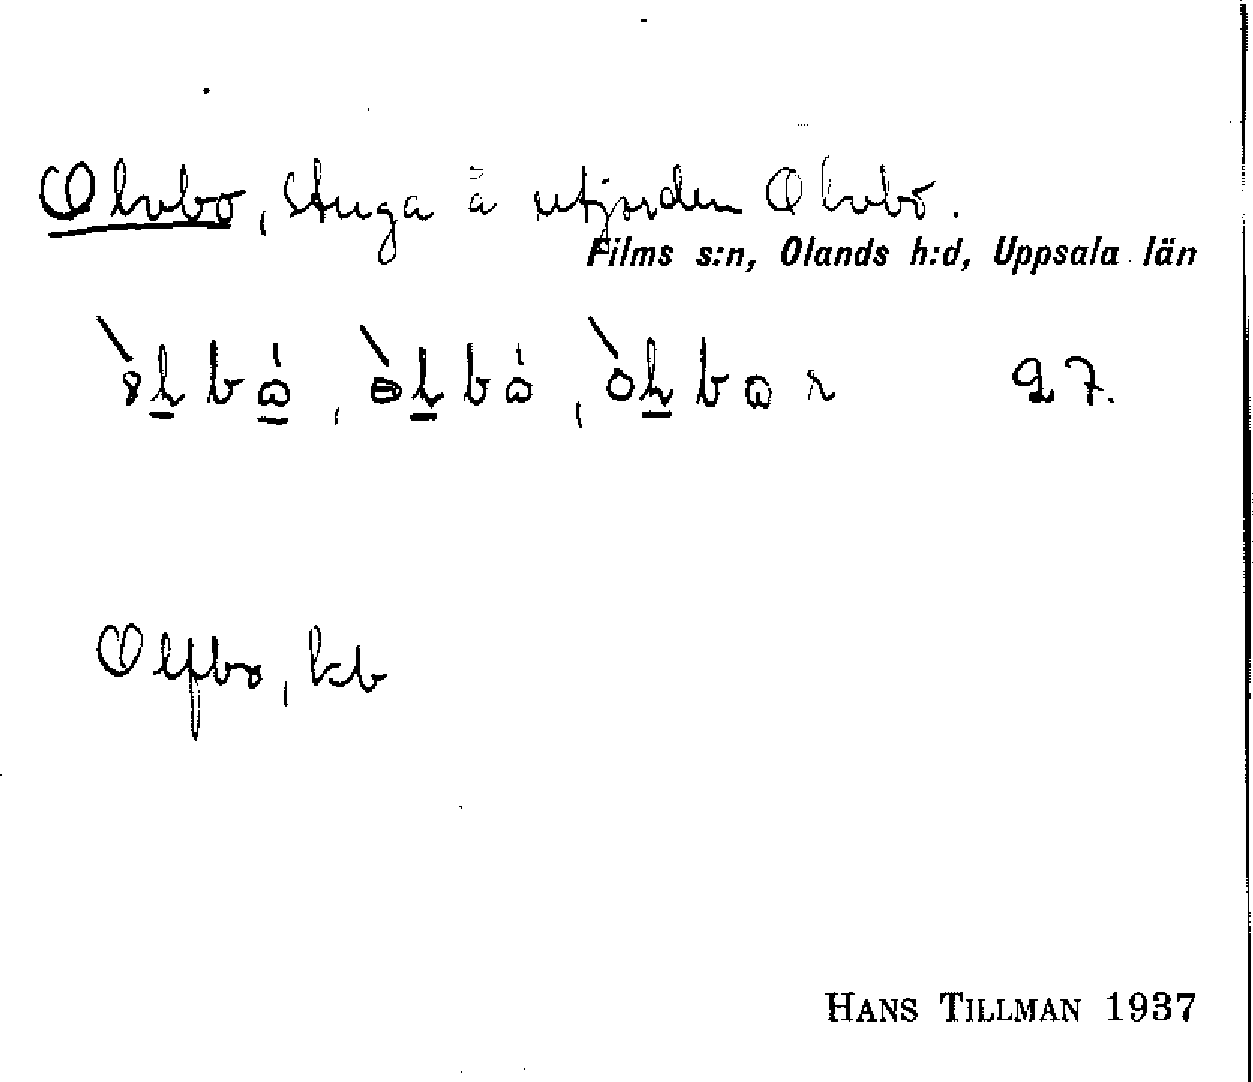 Olvbo, stuga å utjorden Olvbo.
Films s:n, Olands h:d, Uppsala län
27.
Olfbo, kb
HANS TILLMAN 1937